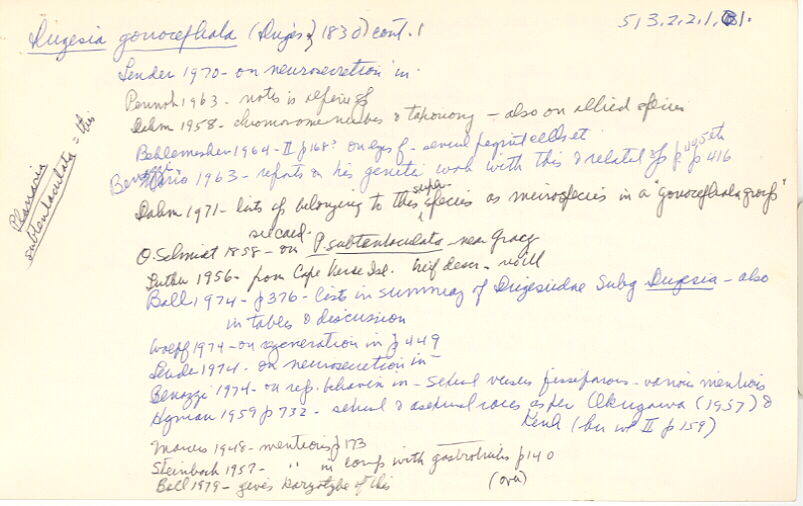 Dugesia gonocephala (Dugès, 1830) cont. 1
513.2.2.1.B1.
Lender 1970 - on neurosecretion in
Pennoh 1963 - notes in defense of
Dahm 1958 - chromosome numbers & taxonomy - also on allied species
Beklemishev 1964 - II p 168? on eyes of - several pigment cells et
Benazzi Mario 1963 - reports on his genetic work with this & related sp p. 405 et p 416
Dahm 1971 - lists sp belonging to this super species as microspecies in a "gonocephala group"
see card.
O. Schmidt 1858 - on P. subtentaculata near Graz
Luther 1956 - from Cape Verde Isl. brief descr. - no ill
Ball 1974 - p 376 - lists in summary of Dugesiidae Subg Dugesia - also
in tables & discussion
Wolff 1974 - on regeneration in p 449
Lender 1974 - on neurosecretion in -
Benazzi 1974 - on behavior in - sexual versus fissiparous - various mentions
Hyman 1959 p 732 - sexual & asexual races as per Okugawa (1957) &
Kenk (her vol II p 159)
Marcus 1948 - mentions p 173
Steinbock 1957 - " in comp with gastrotrichs p 140
Ball 1979 - gives karyotype of this
(over)
Planaria
subtentaculata = this